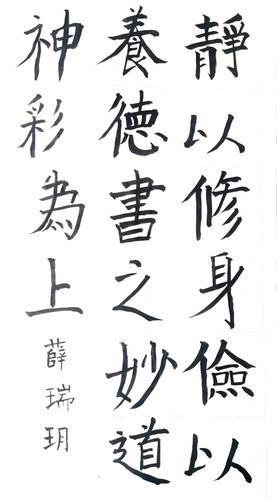 靜以修身儉以
養德書之妙道
神彩為上
薛瑞玥